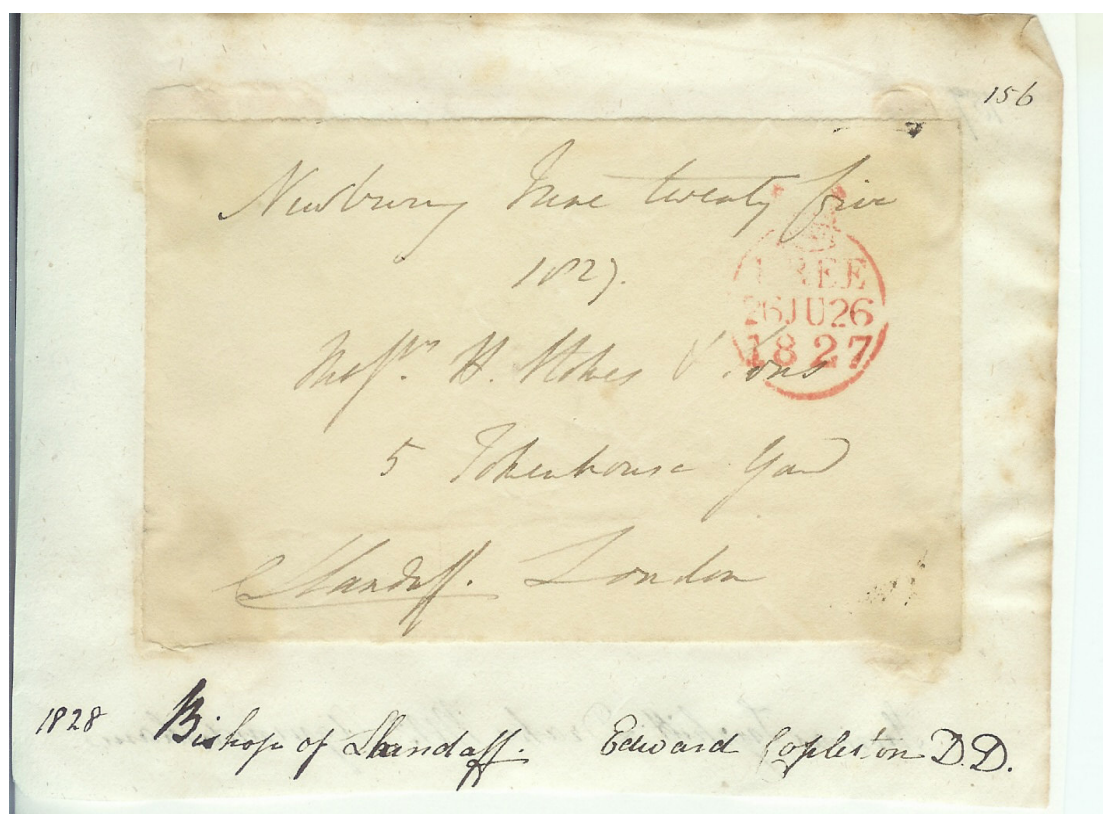 156
Newbury June twenty five
1827.
FREE
26JU26
1827
Messrs. H. Stokes & Sons
5 Tokenhouse Yard
Llandaff. London
1828 Bishop of Llandaff. Edward Copleston D.D.